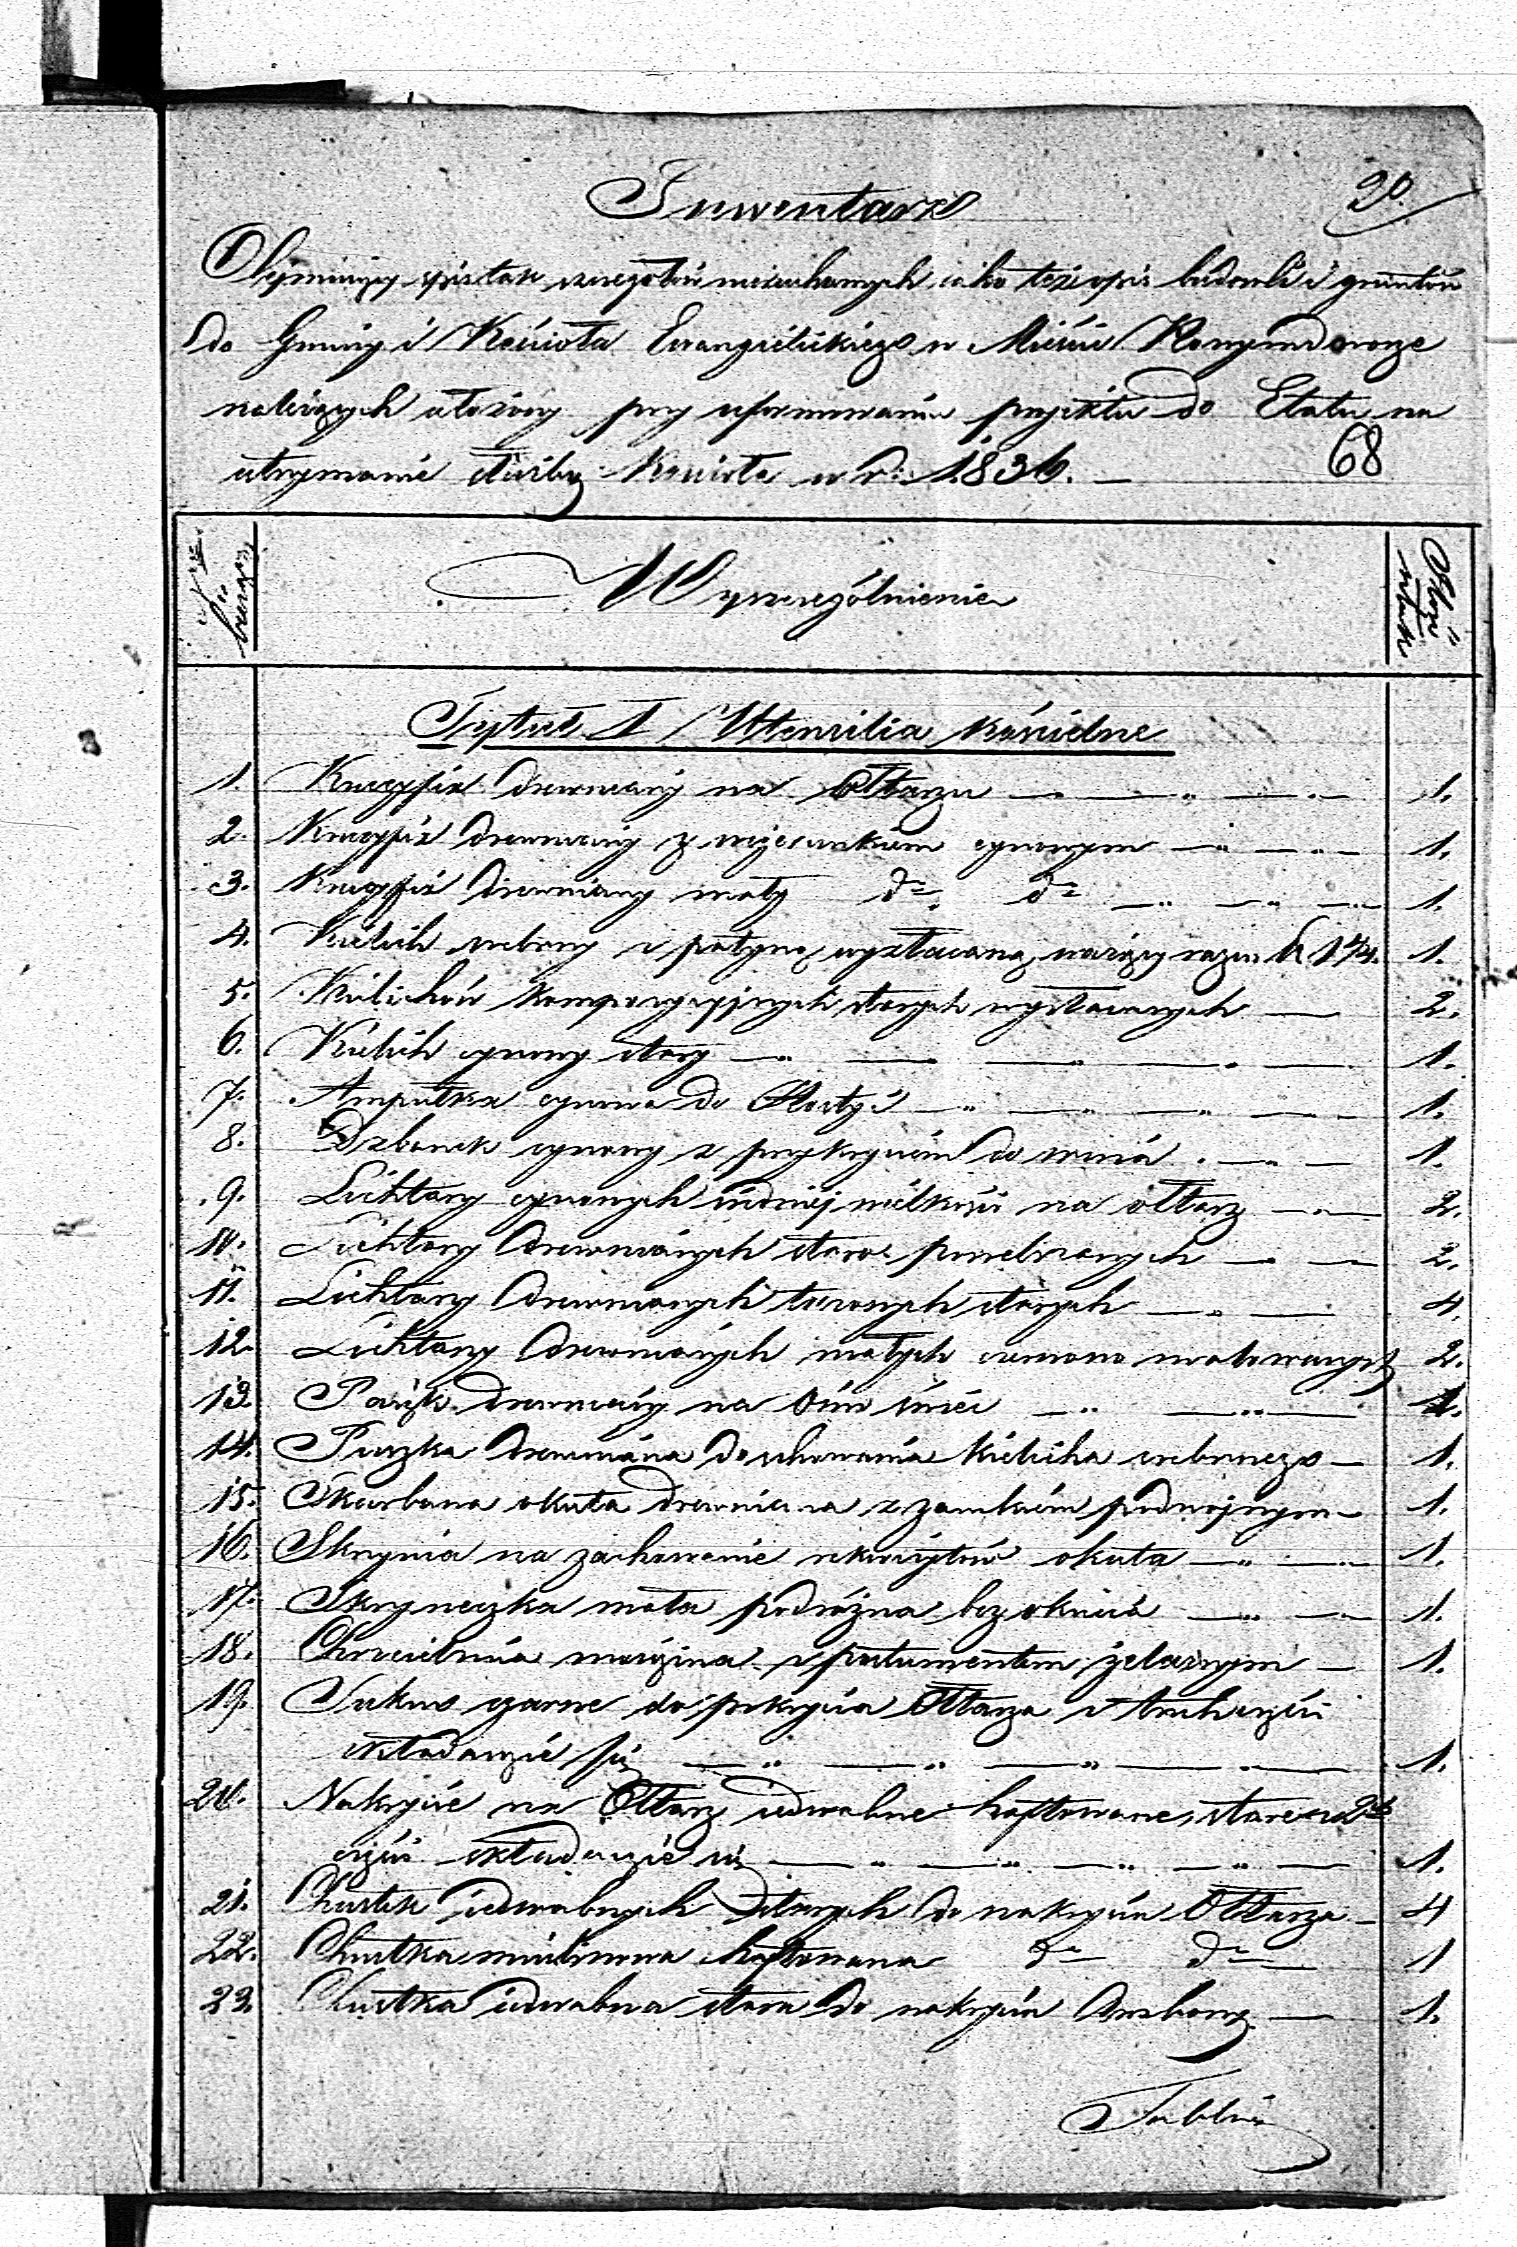 Inwentarz
20.
Obejmujący spis tak szczegółów nieruchomych iako też opis budowli i gruntów
do Gminy i Kościoła Ewangelickiego w Mieście
należących ułożony przy uformowaniu projektu do Etatu na
utrzymanie służby Kościoła w r. 1836.
68
№ bieżący
Wyszczególnienie
Ilość sztuk
Tytuł I Utensilia kościelne
1. Krucyfix drewniany na Ołtarzu 1.
2. Krucyfix drewniany z wizerunkiem cynowym 1.
3. Krucyfix drewniany mały dto dto 1.
4. Kielich srebrny z patyną wyzłacaną ważący razem 1.
5. Kielichów kompozycyjnych starych wyzłacanych 2.
6. Kielich cynowy stary 1.
7. Ampułka cynowa do Hostyi 1.
8. Dzbanek cynowy z przykryciem do wina 1.
9. Lichtarzy cynowych średniej wielkości na ołtarz 2.
10. Lichtarzy drewnianych staro posrebrzanych 2.
11. Lichtarzy drewnianych starych 4.
12. Lichtarzy drewnianych małych czarno malowanych 2.
13. drewniany na 1.
14. Puszka drewniana do chowania kielicha srebrnego 1.
15. Skarbona okuta drewniana z zamkiem podwójnym 1.
16. Skrzynia na zachowanie rekwizytów okuta 1.
17. Skrzyneczka mała podróżna bez okucia 1.
18. Chrzcielnica mosiężna z postumentem żelaznym 1.
19. Sukno czarne do pokrycia Ołtarza z trzech części
składające się 1.
20. Nakrycie na Ołtarz jedwabne haftowane, stare z 2ch
części składające się 1.
21. Chustek jedwabnych starych do nakrycia Ołtarza 4
22. Chustka muślinowa haftowana dto dto 1
23. Chustka jedwabna stara do nakrycia 1.